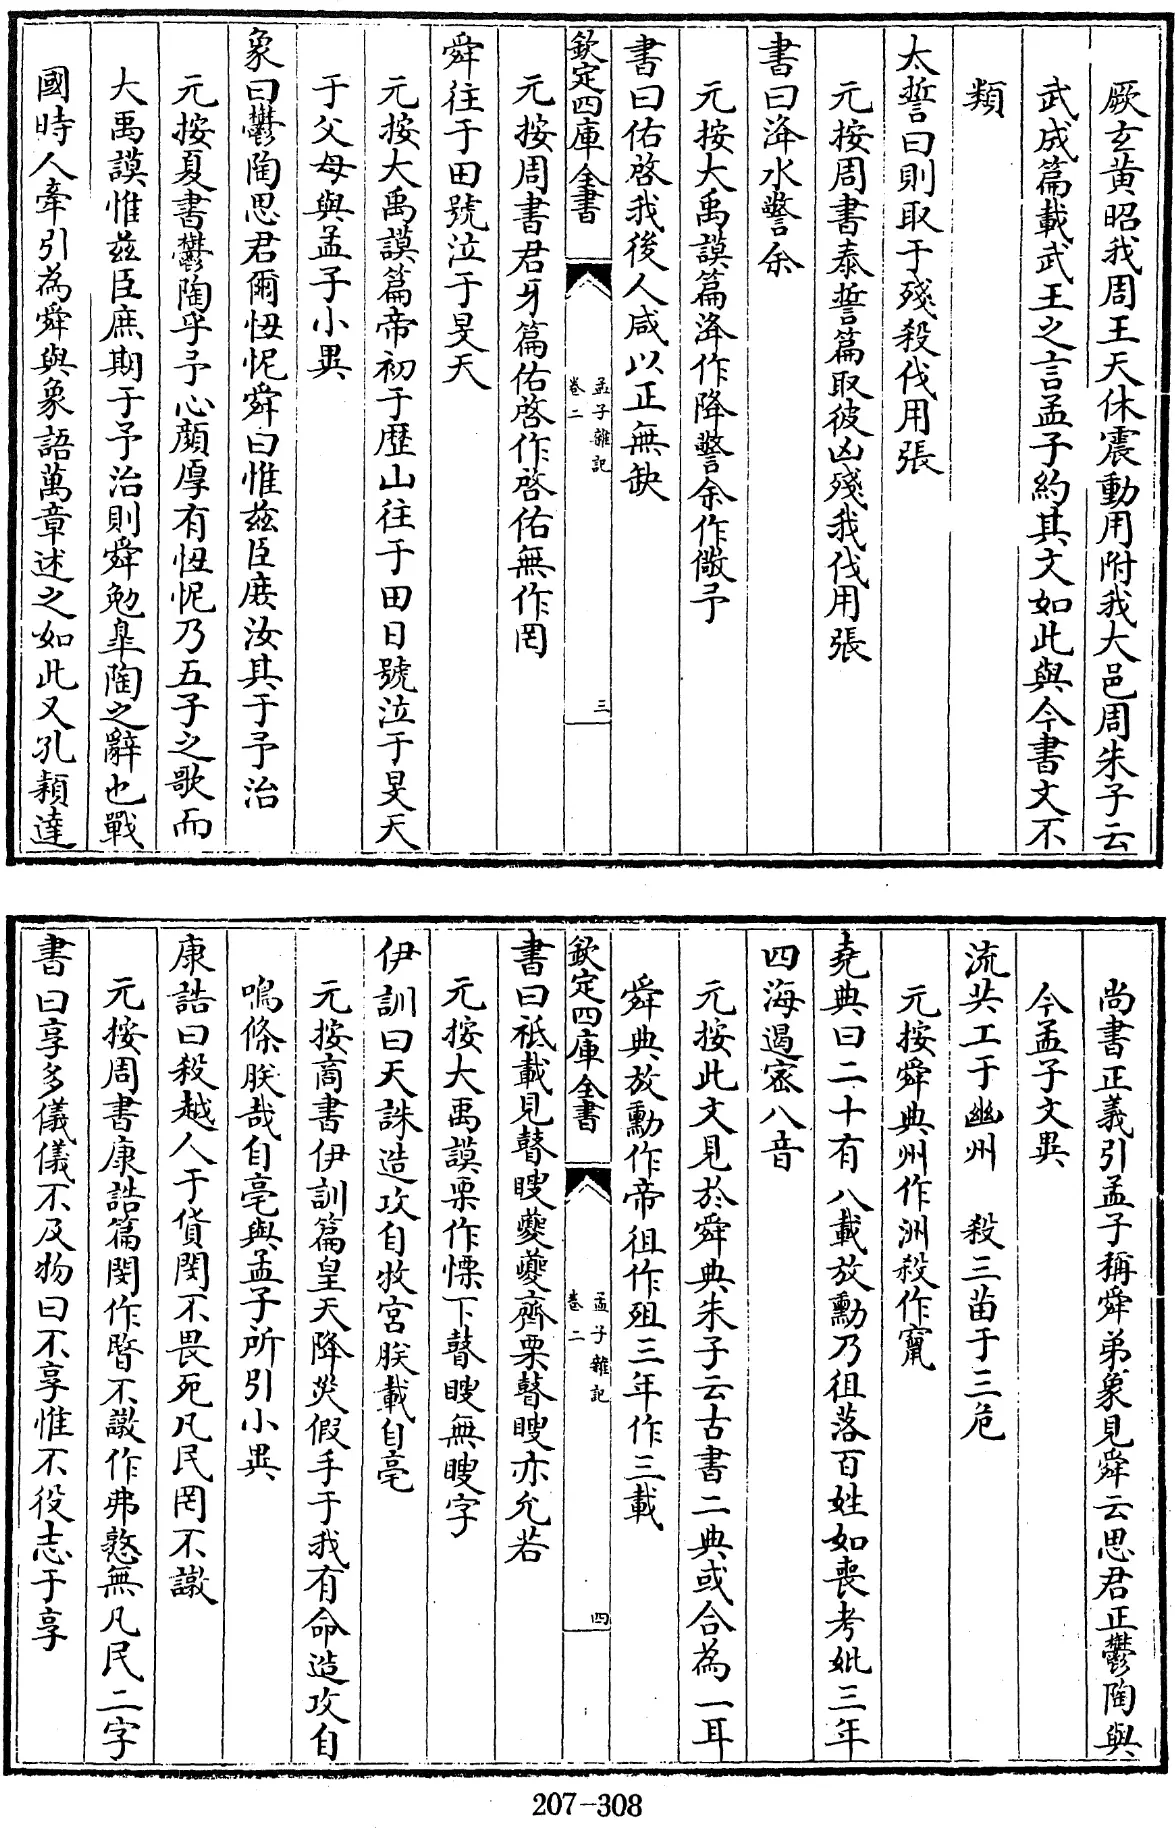 厥玄黃昭我周王天休震動用附我大邑周朱子云
武成篇載武王之言孟子約其文如此與今書文不
類
太誓曰則取于殘殺伐用張
元按周書泰誓篇取彼凶殘我伐用張
書曰洚水警余
元按大禹謨篇洚作降警余作儆予
書曰佑啓我後人咸以正無缺
欽定四庫全書
孟子雜記
卷二
三
元按周書君牙篇佑啓作啓佑無作罔
舜往于田號泣于旻天
元按大禹謨篇帝初于歴山往于田日號泣于旻天
于父母與孟子小異
象曰鬱陶思君爾忸怩舜曰惟茲臣庶汝其于予治
元按夏書鬱陶乎予心顔厚有忸怩乃五子之歌而
大禹謨惟茲臣庶期于予治則舜勉臯陶之辭也戰
國時人牽引為舜與象語萬章述之如此又孔穎達
尚書正義引孟子稱舜弟象見舜云思君正鬱陶與
今孟子文異
流共工于幽州 殺三苗于三危
元按舜典州作洲殺作竄
堯典曰二十有八載放勳乃徂落百姓如喪考妣三年
四海遏密八音
元按此文見於舜典朱子云古書二典或合為一耳
舜典放勳作帝徂作殂三年作三載
欽定四庫全書
孟子雜記
卷二
四
書曰祗載見瞽瞍夔夔齊栗瞽瞍亦允若
元按大禹謨栗作慄下瞽瞍無瞍字
伊訓曰天誅造攻自牧宮朕載自亳
元按商書伊訓篇皇天降災假手于我有命造攻自
鳴條朕哉自亳與孟子所引小異
康誥曰殺越人于貨閔不畏死凡民罔不譈
元按周書康誥篇閔作暋不譈作弗憝無凡民二字
書曰享多儀儀不及物曰不享惟不役志于享
207-308